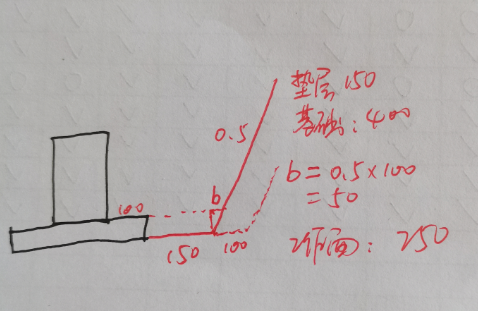 垫层 150
0.5
基础: 400
b = 0.5×100
= 50
100
b
150
100
工作面: 250